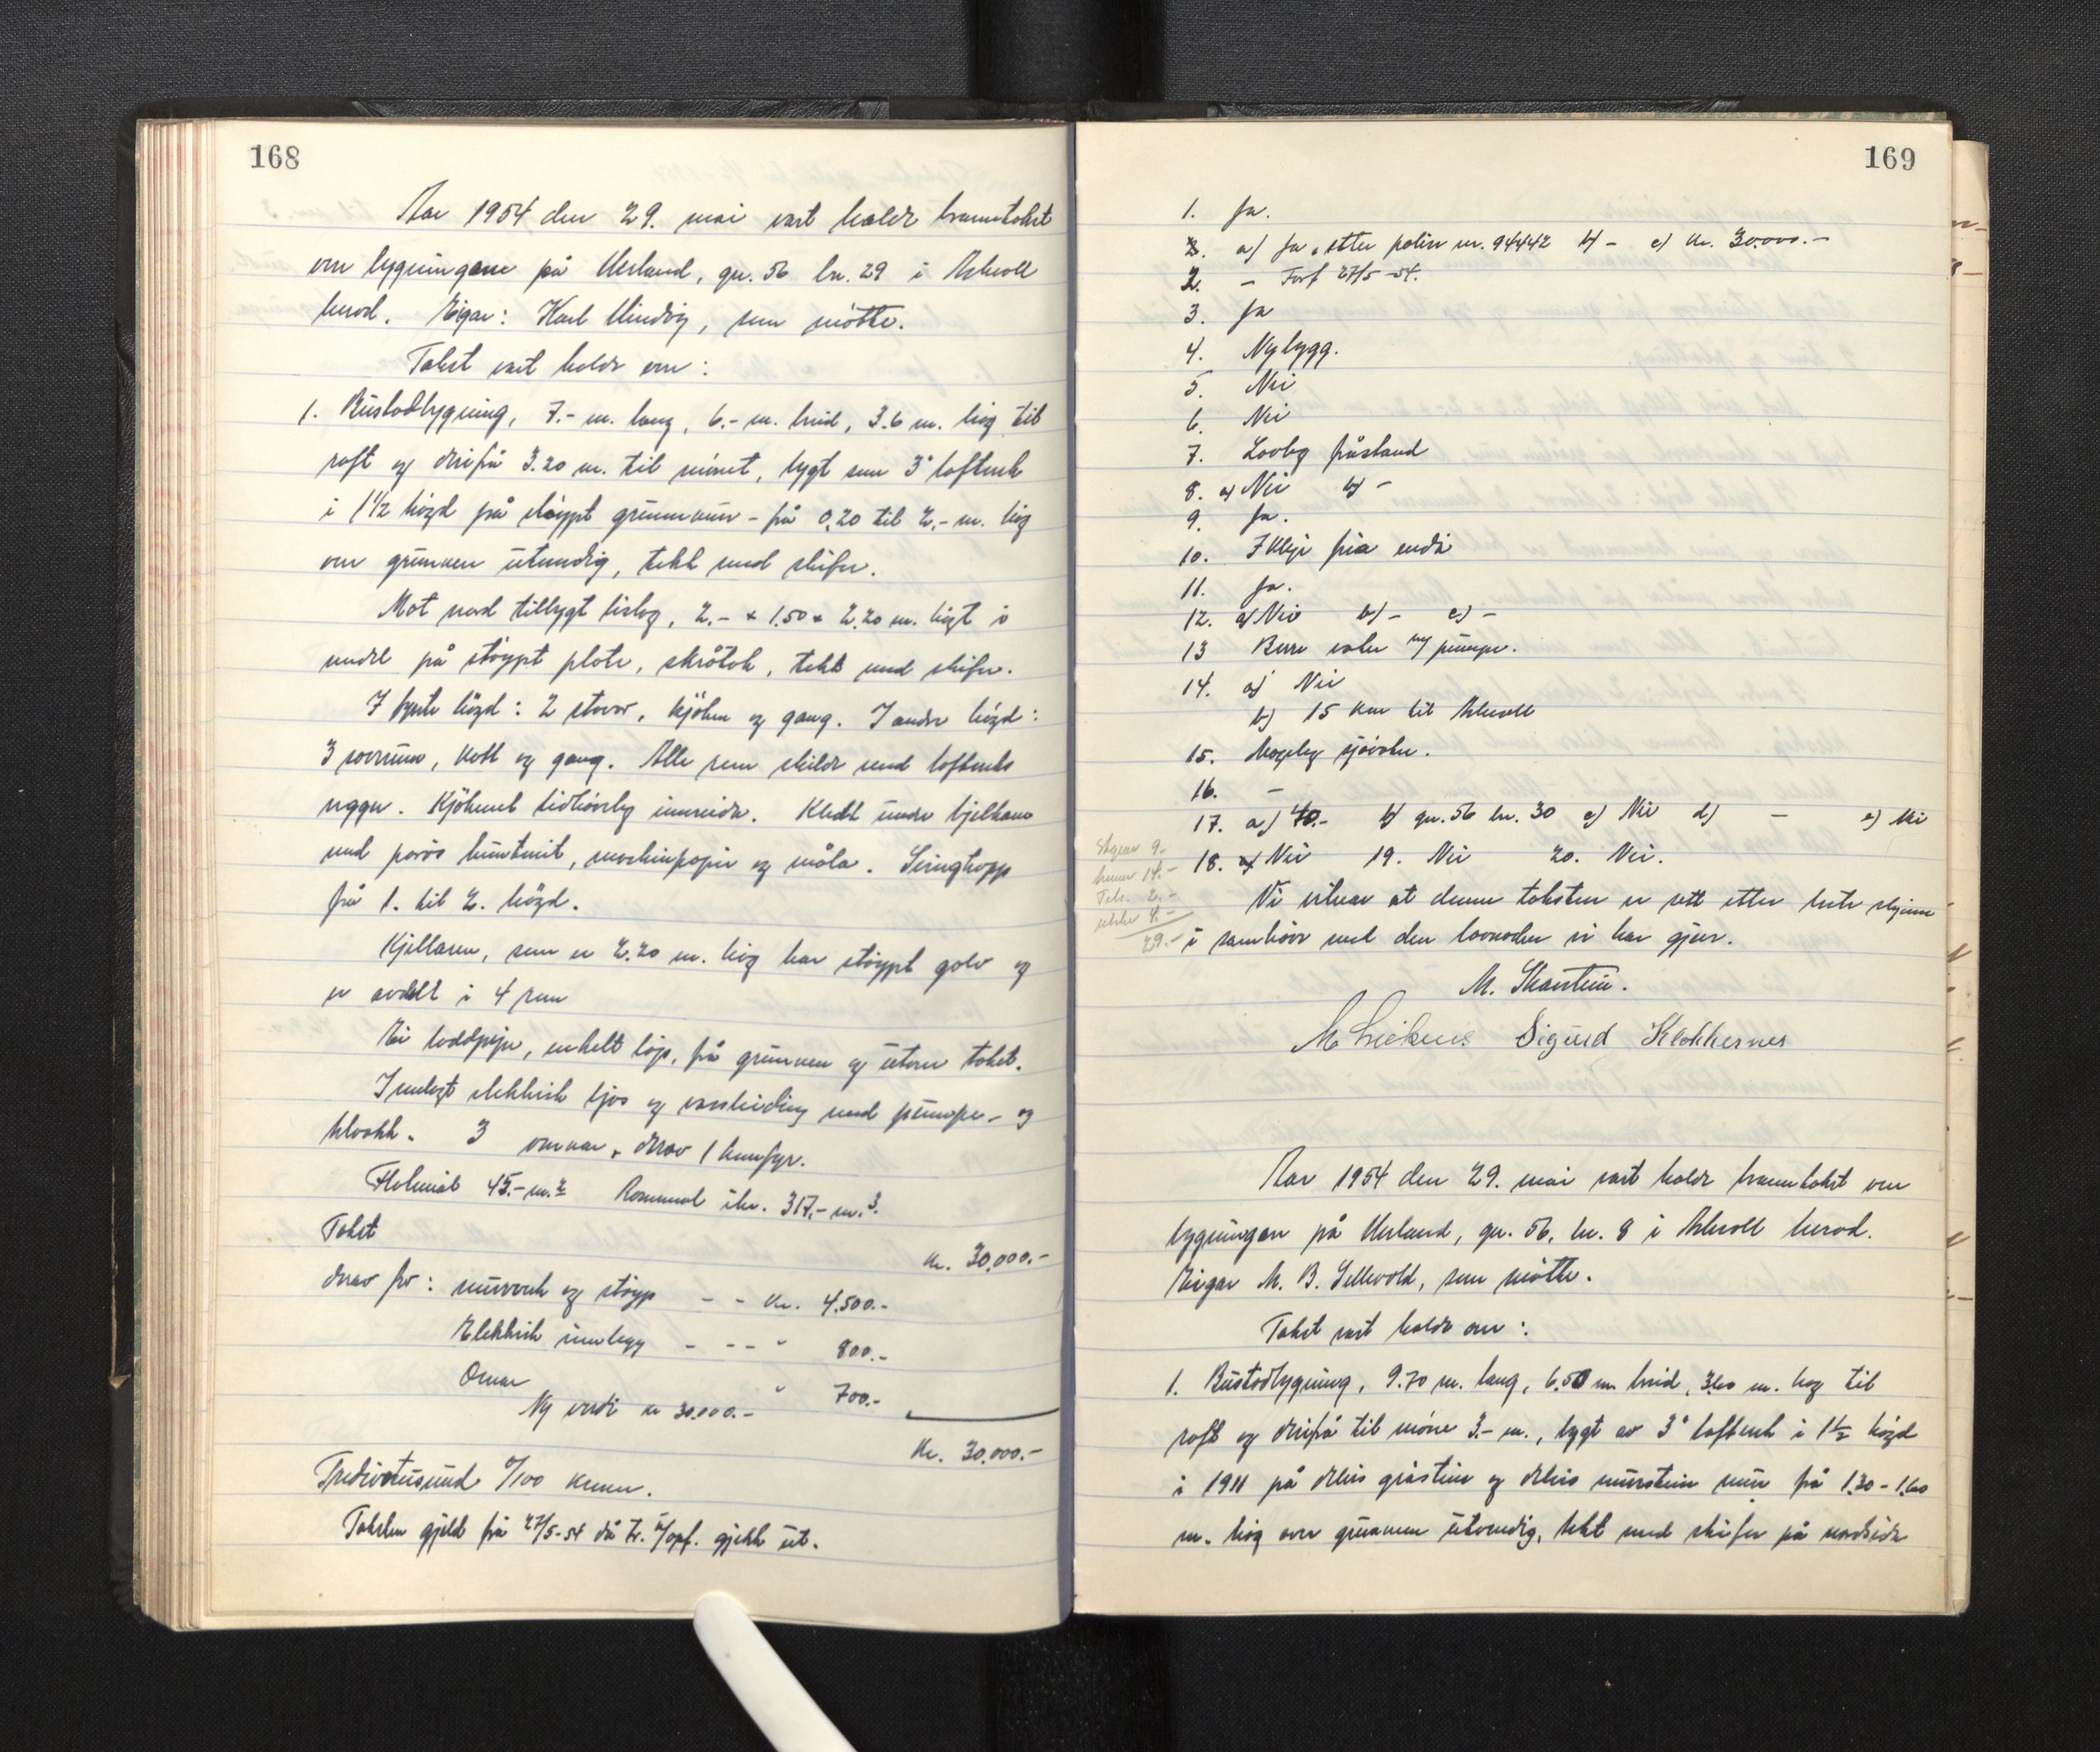 168
Aar 1954 den 29. mai vart haldt branntakst
over bygningane på Urland, gn. 56 bn. 29 i Askvoll
herad. Eigar: Karl Mindvig, som møtte.
Takst vart haldt over:
1. Bustadbygning, 7.- m. lang, 6.- m. breid, 3.6 m. høg til
raft og derifrå 3.20 m. til mønet, bygt som 3" laftverk
i 1 1/2 høgd på støypt grunnmur - frå 0.20 til 2.- m. høg
over grunnen utvendig, tekt med skifer.
Mot nord tilbygt bislag, 2.- × 1.50 × 2.20 m. bygt i
verk på støypt plate, skråtak, tekt med skifer.
I fyrste høgd: 2 stover, kjøken og gang. I andre høgd:
3 soverum, kott og gang. Alle rom skilde med laftverks
veggar. Kjøkenet tidhøveleg innreidt. Kledt under bjelkane
med porøs huntonit, maskinpapir og måla. Svingtrapp
frå 1. til 2. høgd.
Kjellaren, som er 2.20 m. høg har støypt golv og
er avdelt i 4 rom
Ei teglpipe, enkelt løp, frå grunnen og utover taket.
Innlagt elektrisk ljos og vassleiding med pumpe- og
kloakk. 3 omnar, derav 1 komfyr.
Flatemål 45.- m.2 Rommål ikr. 317.- m.3.
Takst
kr. 30.000.-
derav for: murverk og støyp - - kr. 4.500.-
Elektrisk innlegg - - - " 800.-
Omnar " 700.-
Ny verdi kr 30.000.-
Kr. 30.000.-
Tredivetusund 0/100 kroner.
Taksten gjeld frå 27/5-54 då br. u/oppf. gjekk ut.
169
1. Ja.
2. a) Ja, etter polise nr. 94442 b) - c) kr. 30.000.-
2. - Forf 27/5-54.
3. Ja
4. Nybygg.
5. Nei
6. Nei
7. Lovleg påstand
8. a) Nei b) -
9. Ja.
10. Ikkje frie endå
11. Ja.
12. a) Nei b) - c) -
13 Berre vatn m/ pumpe.
14. a) Nei
b) 15 km til Askvoll
15. Mogeleg sjøvatn.
16. -
17. a) 40.- b) gn. 56 bn. 30 c) Nei d) - e) Nei
18. a) Nei 19. Nei 20. Nei.
9.-
14.-
2.-
4.-
29.-
Vi vitnar at denne taksten er sett etter beste skjønn
i samhøve med den lovnaden vi har gjeve.
M. Skarstein.
Sigurd Klokkernes
Aar 1954 den 29. mai vart haldt branntakst over
bygningen på Urland, gn. 56, bn. 8 i Askvoll herad.
Eigar M. B. Sellevold, som møtte.
Takst vart haldt over:
1. Bustadbygning, 9.70 m. lang, 6.50 m. breid, 3.60 m. høg til
raft og derifrå til møne 3.- m., bygt av 3" laftverk i 1 1/2 høgd
i 1911 på delvis gråstein og delvis murstein mur frå 1.30 - 1.60
m. høg over grunnen utvendig, tekt med skifer på nordsida